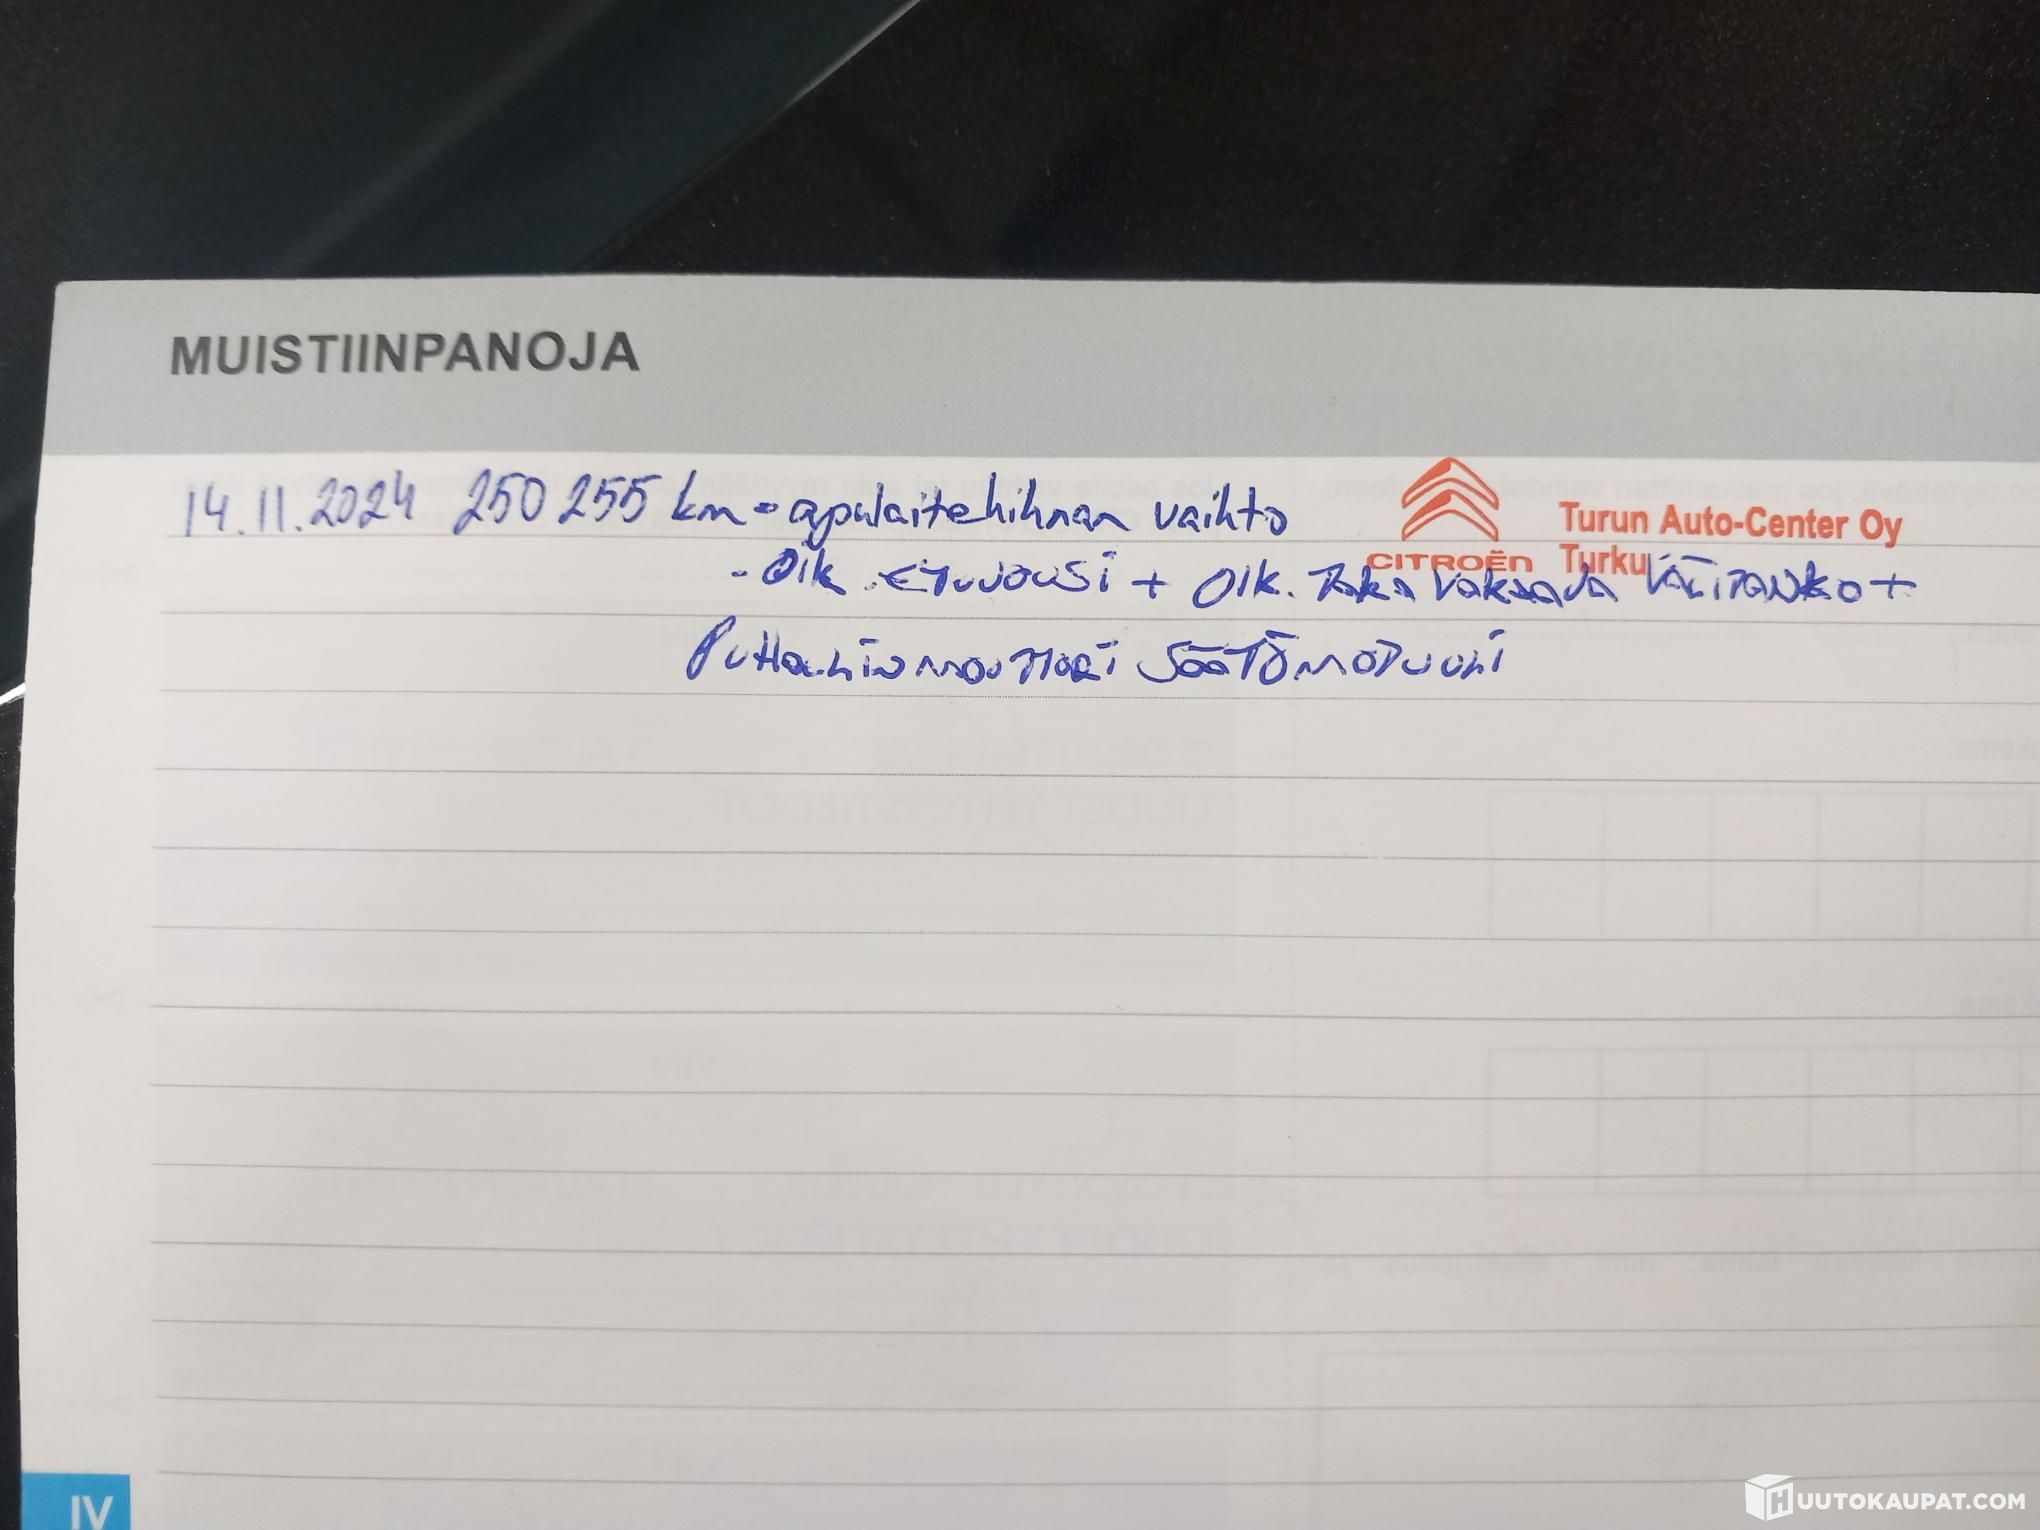 MUISTIINPANOJA
14.11.2024 250 255 km - apulaitehihnan vaihto
CITROËN
Turun Auto-Center Oy
Turku
- Oik. etujousi + Oik. Taka vakaaja välitanko +
Puhallinmoottori säätömoduuli
IV
HUUTOKAUPAT.COM